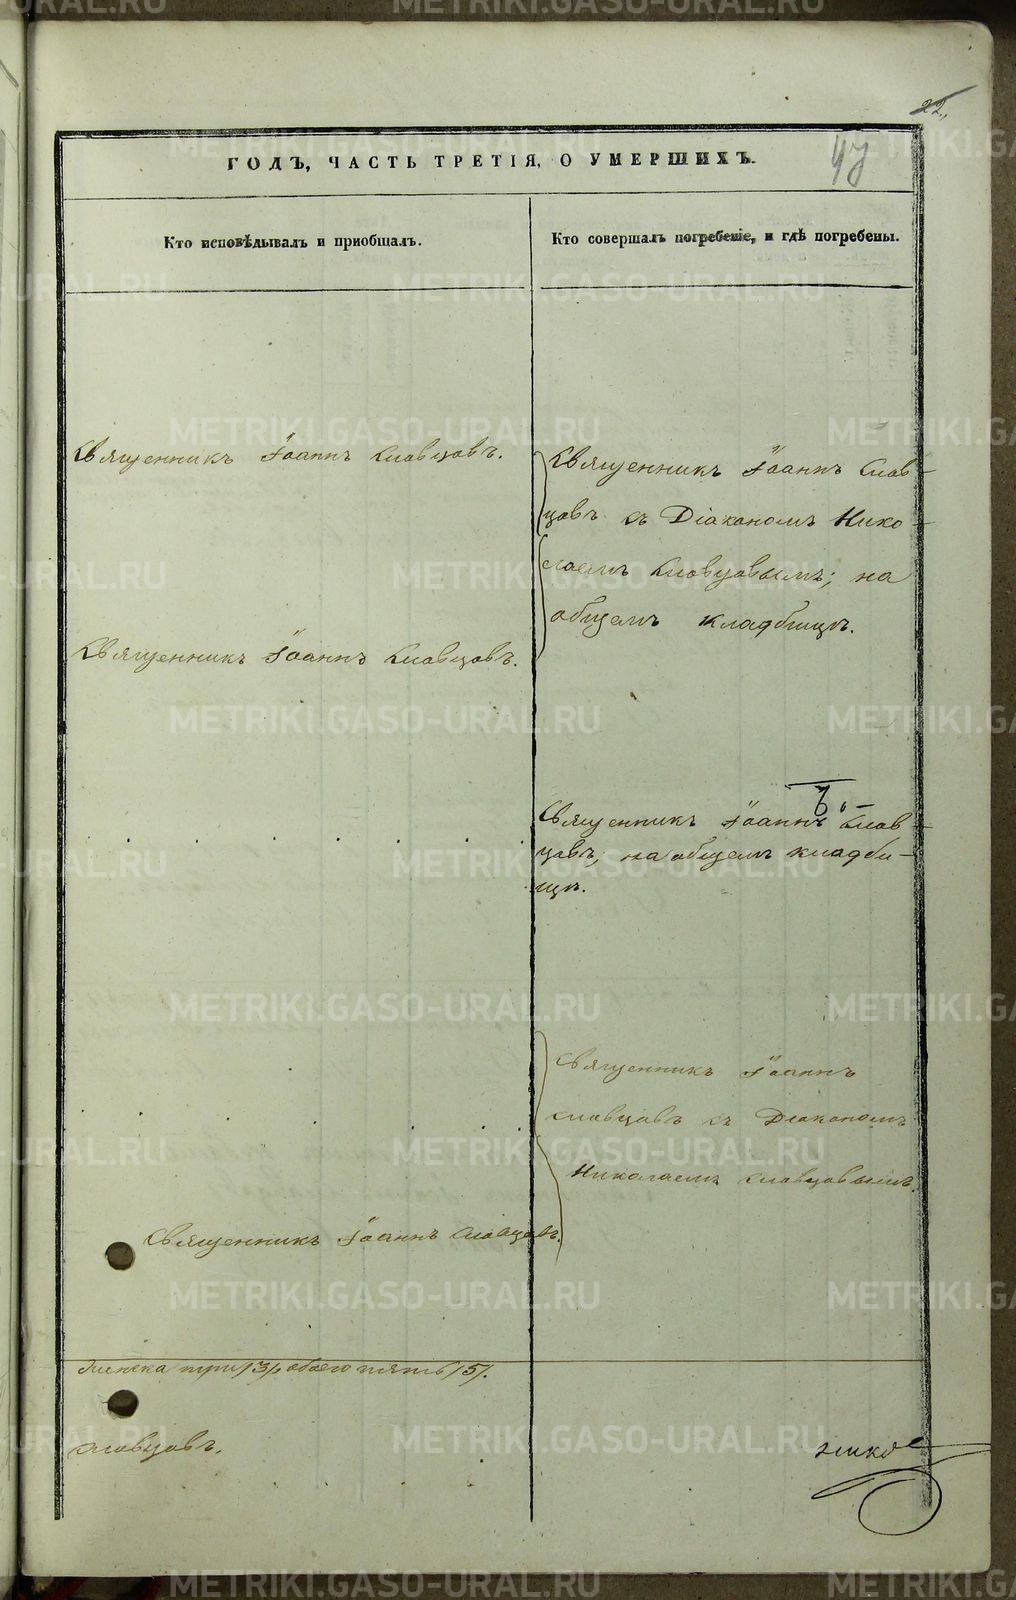 22.
47
ГОДЪ, ЧАСТЬ ТРЕТІЯ, О УМЕРШИХЪ.
Кто исповѣдывалъ и пріобщалъ.
Кто совершалъ погребеніе, и гдѣ погребены.
Священникъ Іоаннъ Словцовъ.
Священникъ Іоаннъ Слов-
цовъ съ Діакономъ Нико-
лаемъ Словцовымъ; на
общемъ кладбищѣ.
Священникъ Іоаннъ Словцовъ.
Священникъ Іоаннъ Слов-
цовъ, на общемъ кладби-
щѣ.
Священникъ Іоаннъ
Словцовъ съ Діакономъ
Николаемъ Словцовымъ.
Священникъ Іоаннъ Словцовъ.
женска три /3/, обоего пять /5/.
Словцовъ.
METRIKI.GASO-URAL.RU